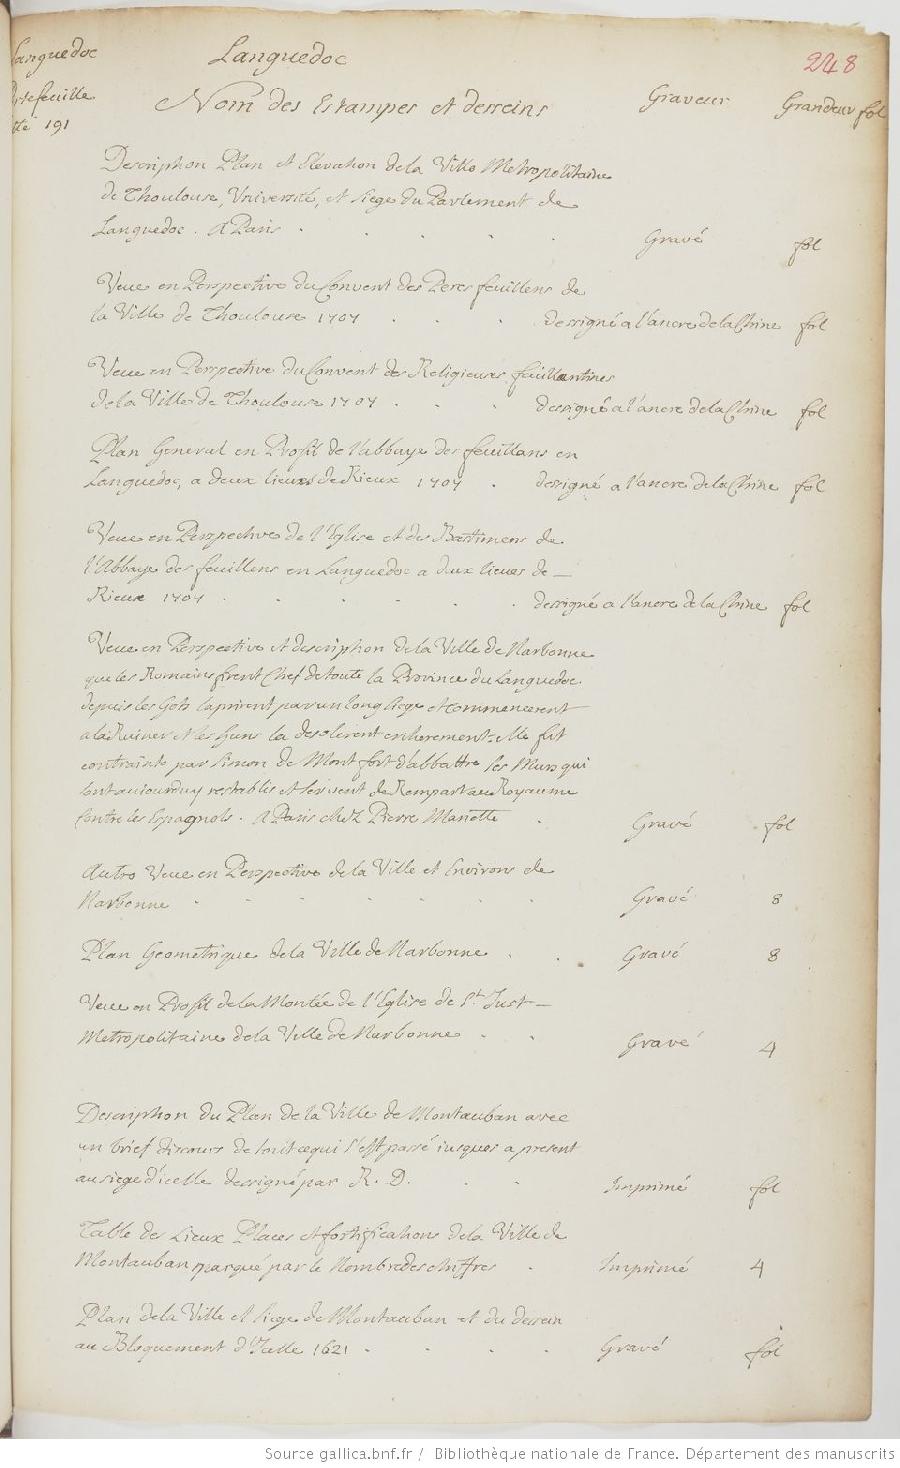 Languedoc
Languedoc
248
Portefeuille
cotté 191
Nom des Estampes et desseins
Graveur
Grandeur fol
Description Plan et Elevation de la Ville Metropolitaine
de Thoulouse, Université, et siege du Parlement de
Languedoc. A Paris . . . . . Gravé fol
Veue en Perspective du Convent des Peres feuillens de
la Ville de Thoulouse 1707 . . . dessigné a l'ancre de la Chine fol
Veue en Perspective du Convent des Religieuses feuillantines
de la Ville de Thoulouse 1707 . . . dessigné a l'ancre de la Chine fol
Plan General en Profil de l'abbaye des feuillans en
Languedoc, a deux lieues de Rieux 1707 . dessigné a l'ancre de la Chine fol
Veue en Perspective de l'Eglise et des Bastimens de
l'Abbaye des feuillens en Languedoc a deux lieues de
Rieux 1707 . . . . . . dessigné a l'ancre de la Chine fol
Veue en Perspective et description de la Ville de Narbonne
que les Romains firent Chef de toute la Province du Languedoc.
depuis les Gots la prirent par un long siege et commencerent
a la Ruiner et les Huns la desolerent entierement. elle fut
contrainte par Simon de Montfort d'abbattre ses Murs qui
sont aujourduy restablis et servent de Rempart au Royaume
Contre les Espagnols. A Paris chez Pierre Mariette . Gravé fol
Autre Veue en Perspective de la Ville et Environs de
Narbonne . . . . . . . Gravé 8
Plan Geometrique de la Ville de Narbonne . . Gravé 8
Veue en Profil de la Montée de l'Eglise de St. Just
Metropolitaine de la Ville de Narbonne . . Gravé 4
Description du Plan de la Ville de Montauban avec
un brief discours de tout ce qui s'est passé jusques a present
au siege d'icelle dessigné par R. D. . . Imprimé fol
Table des Lieux Places et fortifications de la Ville de
Montauban marqué par le Nombre des chiffres . Imprimé 4
Plan de la Ville et siege de Montauban et du dessein
au Bloquement d'Icelle 1621 . . . . Gravé fol
Source gallica.bnf.fr / Bibliothèque nationale de France. Département des manuscrits